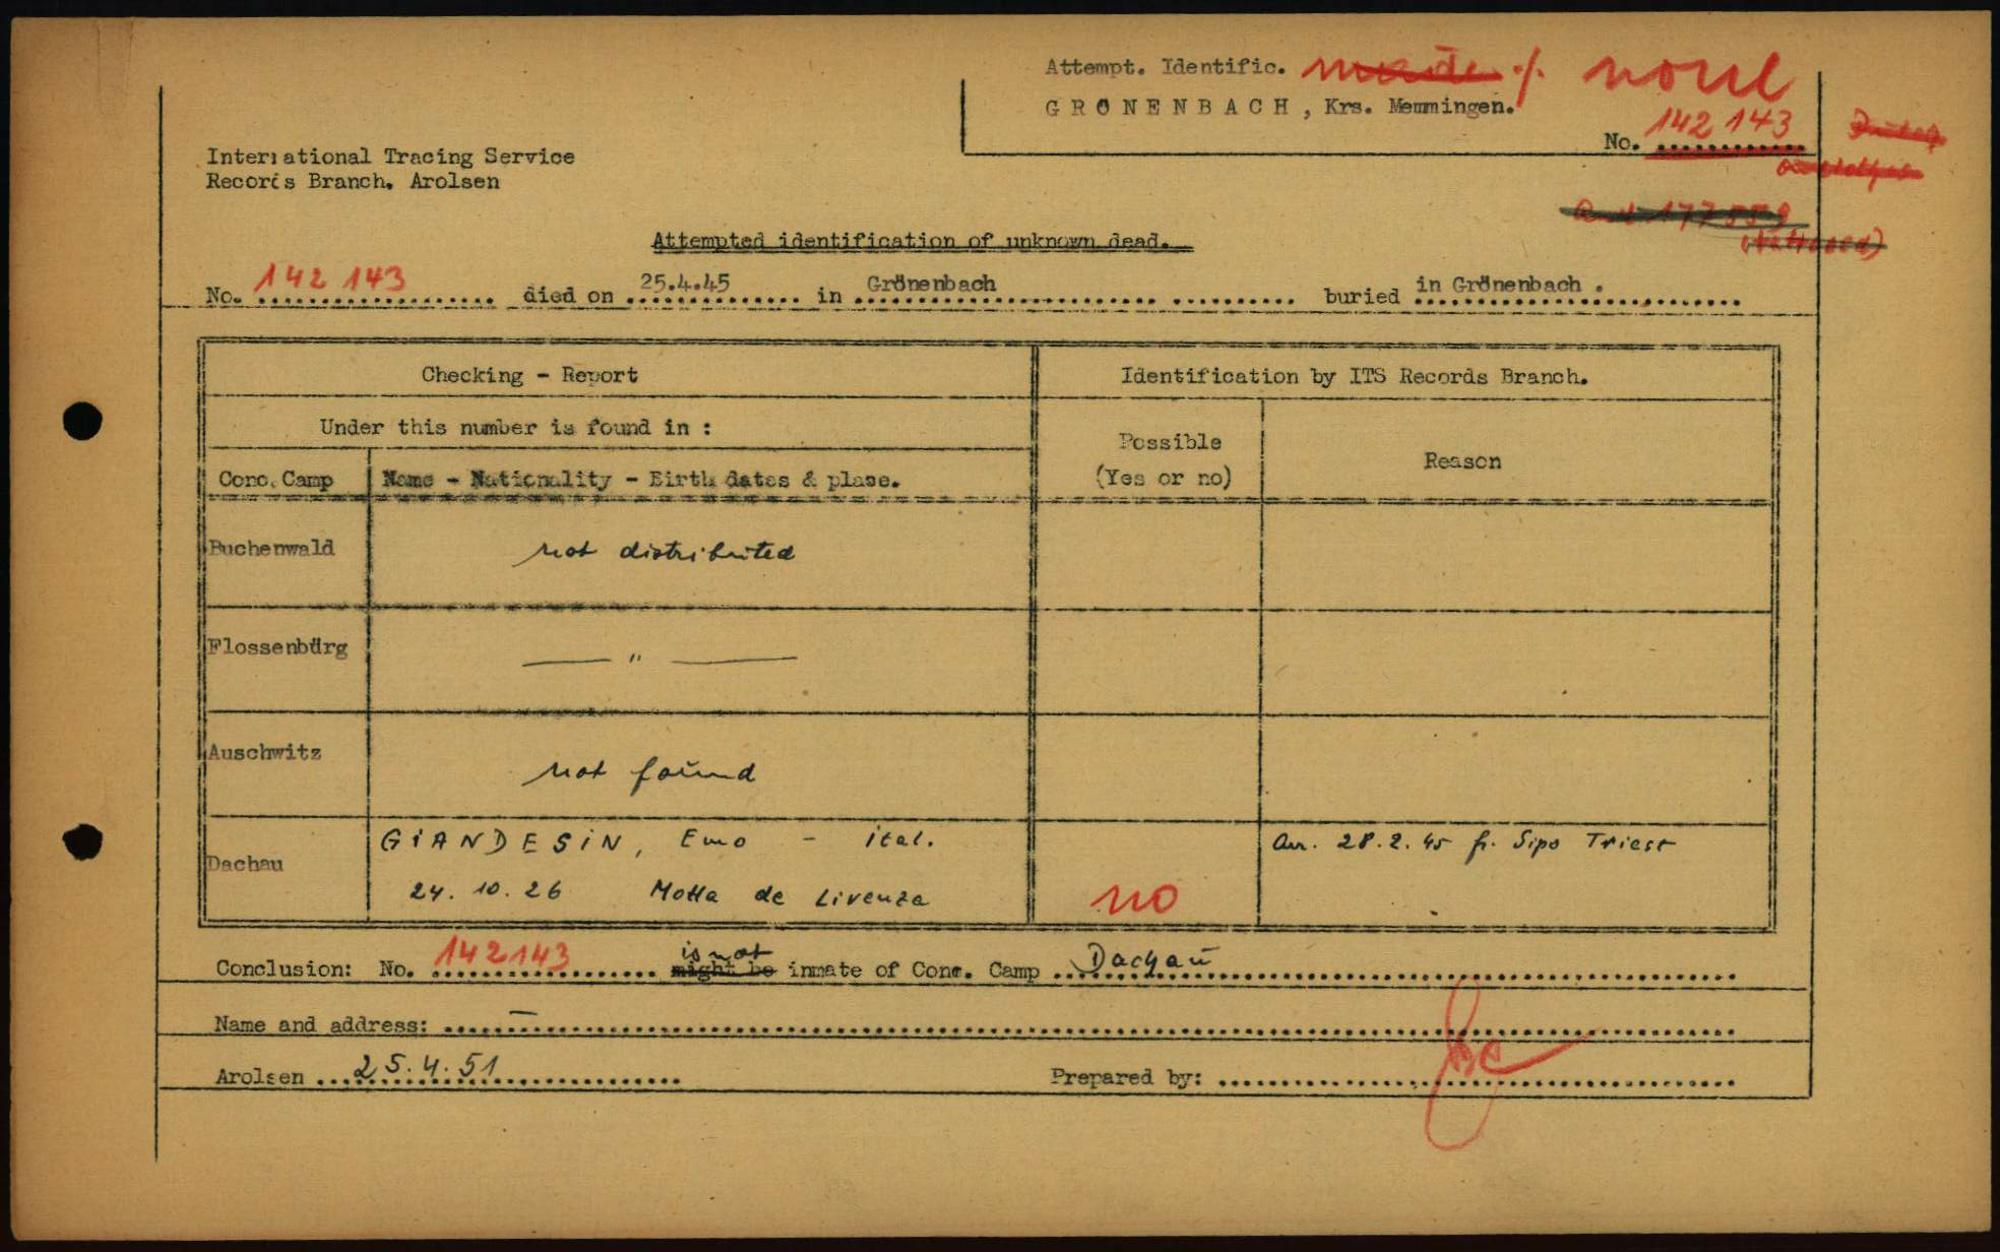 Attempt. Identific.
GRÖNENBACH, Krs. Memmingen.
No. 142 143
International Tracing Service
Records Branch, Arolsen
Attempted identification of unknown dead.
No. 142 143 died on 25.4.45 in Grönenbach buried in Grönenbach.
Checking - Report
Identification by ITS Records Branch.
Under this number is found in :
Possible
(Yes or no)
Reason
Conc. Camp
Name - Nationality - Birth dates & place.
Buchenwald
not distributed
Flossenbürg
— " —
Auschwitz
not found
Dachau
GIANDESIN, Emo - ital.
24. 10. 26 Motta de Livenza
no
Arr. 28.2.45 fr. Sipo Triest
Conclusion: No. 142143 might be is not inmate of Conc. Camp Dachau
Name and address: —
Arolsen 25.4.51
Prepared by: